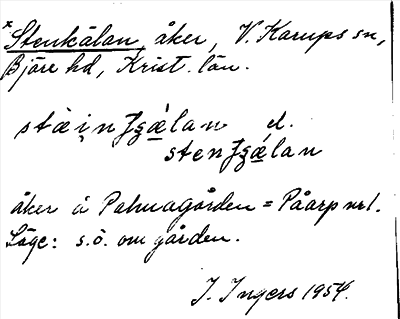 *Stenkälan, åker, V. Karups sn,
Bjäre hd, Krist. län.
el.
åker å Palmagården = Påarp nr 1.
Läge: s.ö. om gården.
I. Ingers 1954.